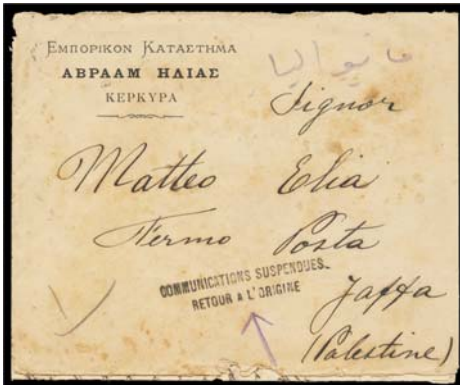 ΕΜΠΟΡΙΚΟΝ ΚΑΤΑΣΤΗΜΑ
ΑΒΡΑΑΜ ΗΛΙΑΣ
ΚΕΡΚΥΡΑ
Signor
Matteo Elia
Fermo Posta
COMMUNICATIONS SUSPENDUES.
RETOUR A L'ORIGINE
Jaffa
(Palestine)